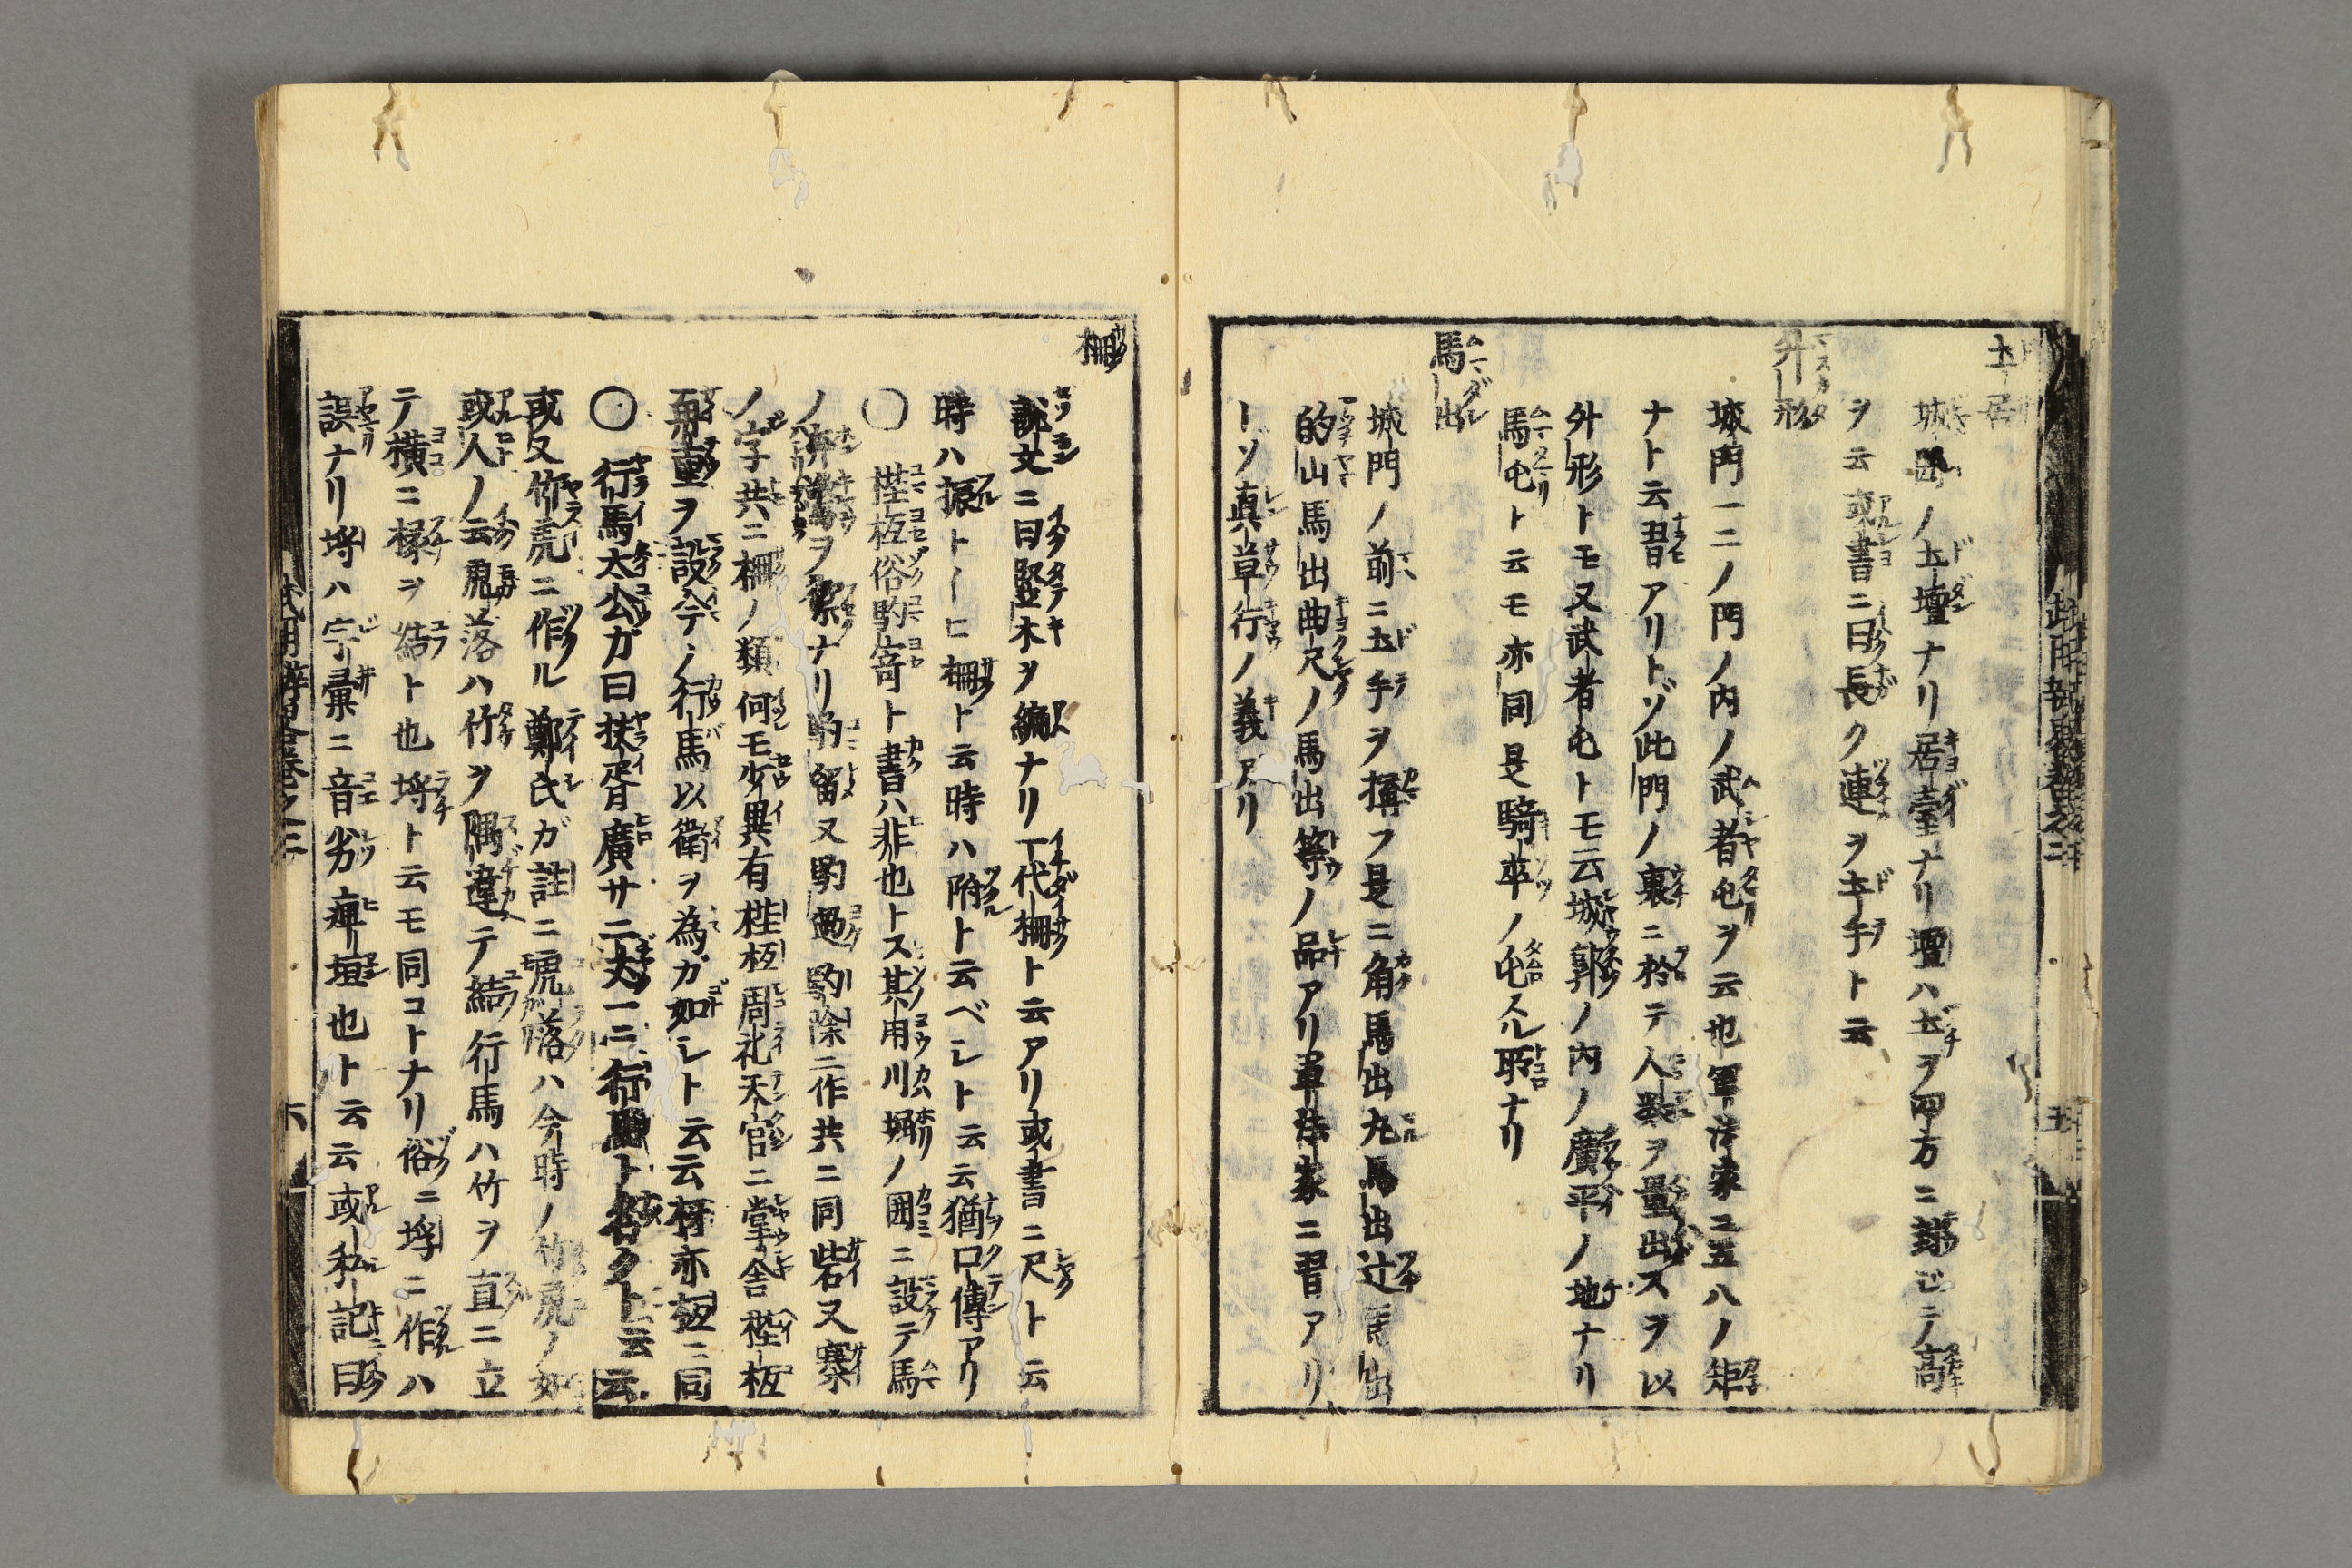 土居
城男ノ土壇ナリ居臺ナリ壇ハ土ヲ四方ニ築ビテ高
ヲ云或書ニ曰長ク連ヲ土手ト云
升形
城門一二ノ門ノ内ノ武者屯ヲ云也軍法家ニ五八ノ矩
ナト云習アリトゾ此門ノ裏ニ於テ人数ヲ量出スヲ以
升形トモ又武者屯トモ云城郭ノ内ノ廣平ノ地ナリ
馬屯ト云モ亦同是騎卒ノ屯スル聖ナリ
馬出
城門ノ前ニ土手ヲ構フ是ニ角馬出丸馬出辻馬出
的山馬出曲尺ノ馬出等ノ品アリ軍法家ニ習アリ
ーソ真草行ノ義アリ
武用辨畧巻之三
五
柵
説文ニ曰竪木ヲ編ナリ一代柵ト云アリ或書ニ尺ト云
時ハ振トーヒ柵ト云時ハ附ト云ベシト云云猶口傳アリ
〇 梐枑俗駒寄ト書ハ非也トス其用川堀ノ囲ニ設テ馬
ノ奔驚ヲ禦ナリ駒留又駒過駒除ニ作共ニ同砦又寨
ノ字共ニ柵ノ類何モ少異有梐枑周礼天官ニ掌舎梐枑
再重ヲ設今ノ行馬以衛ヲ為ガ如シト云云枒亦枑ニ同
〇 行馬太公ガ曰扶胥廣サ二丈一ニ行馬ト名クト云云
或又竹虎ニ作ル鄭氏ガ註ニ琥落ハ今時ノ竹虎ノ如
或人ノ云虎落ハ竹ヲ隅違テ結行馬ハ竹ヲ直ニ立
テ横ニ椽ヲ結ト也埒ト云モ同コトナリ俗ニ埓ニ作ハ
誤ナリ埒ハ字彙ニ音劣庳垣也ト云云或私記曰
武用辨畧巻之三
六